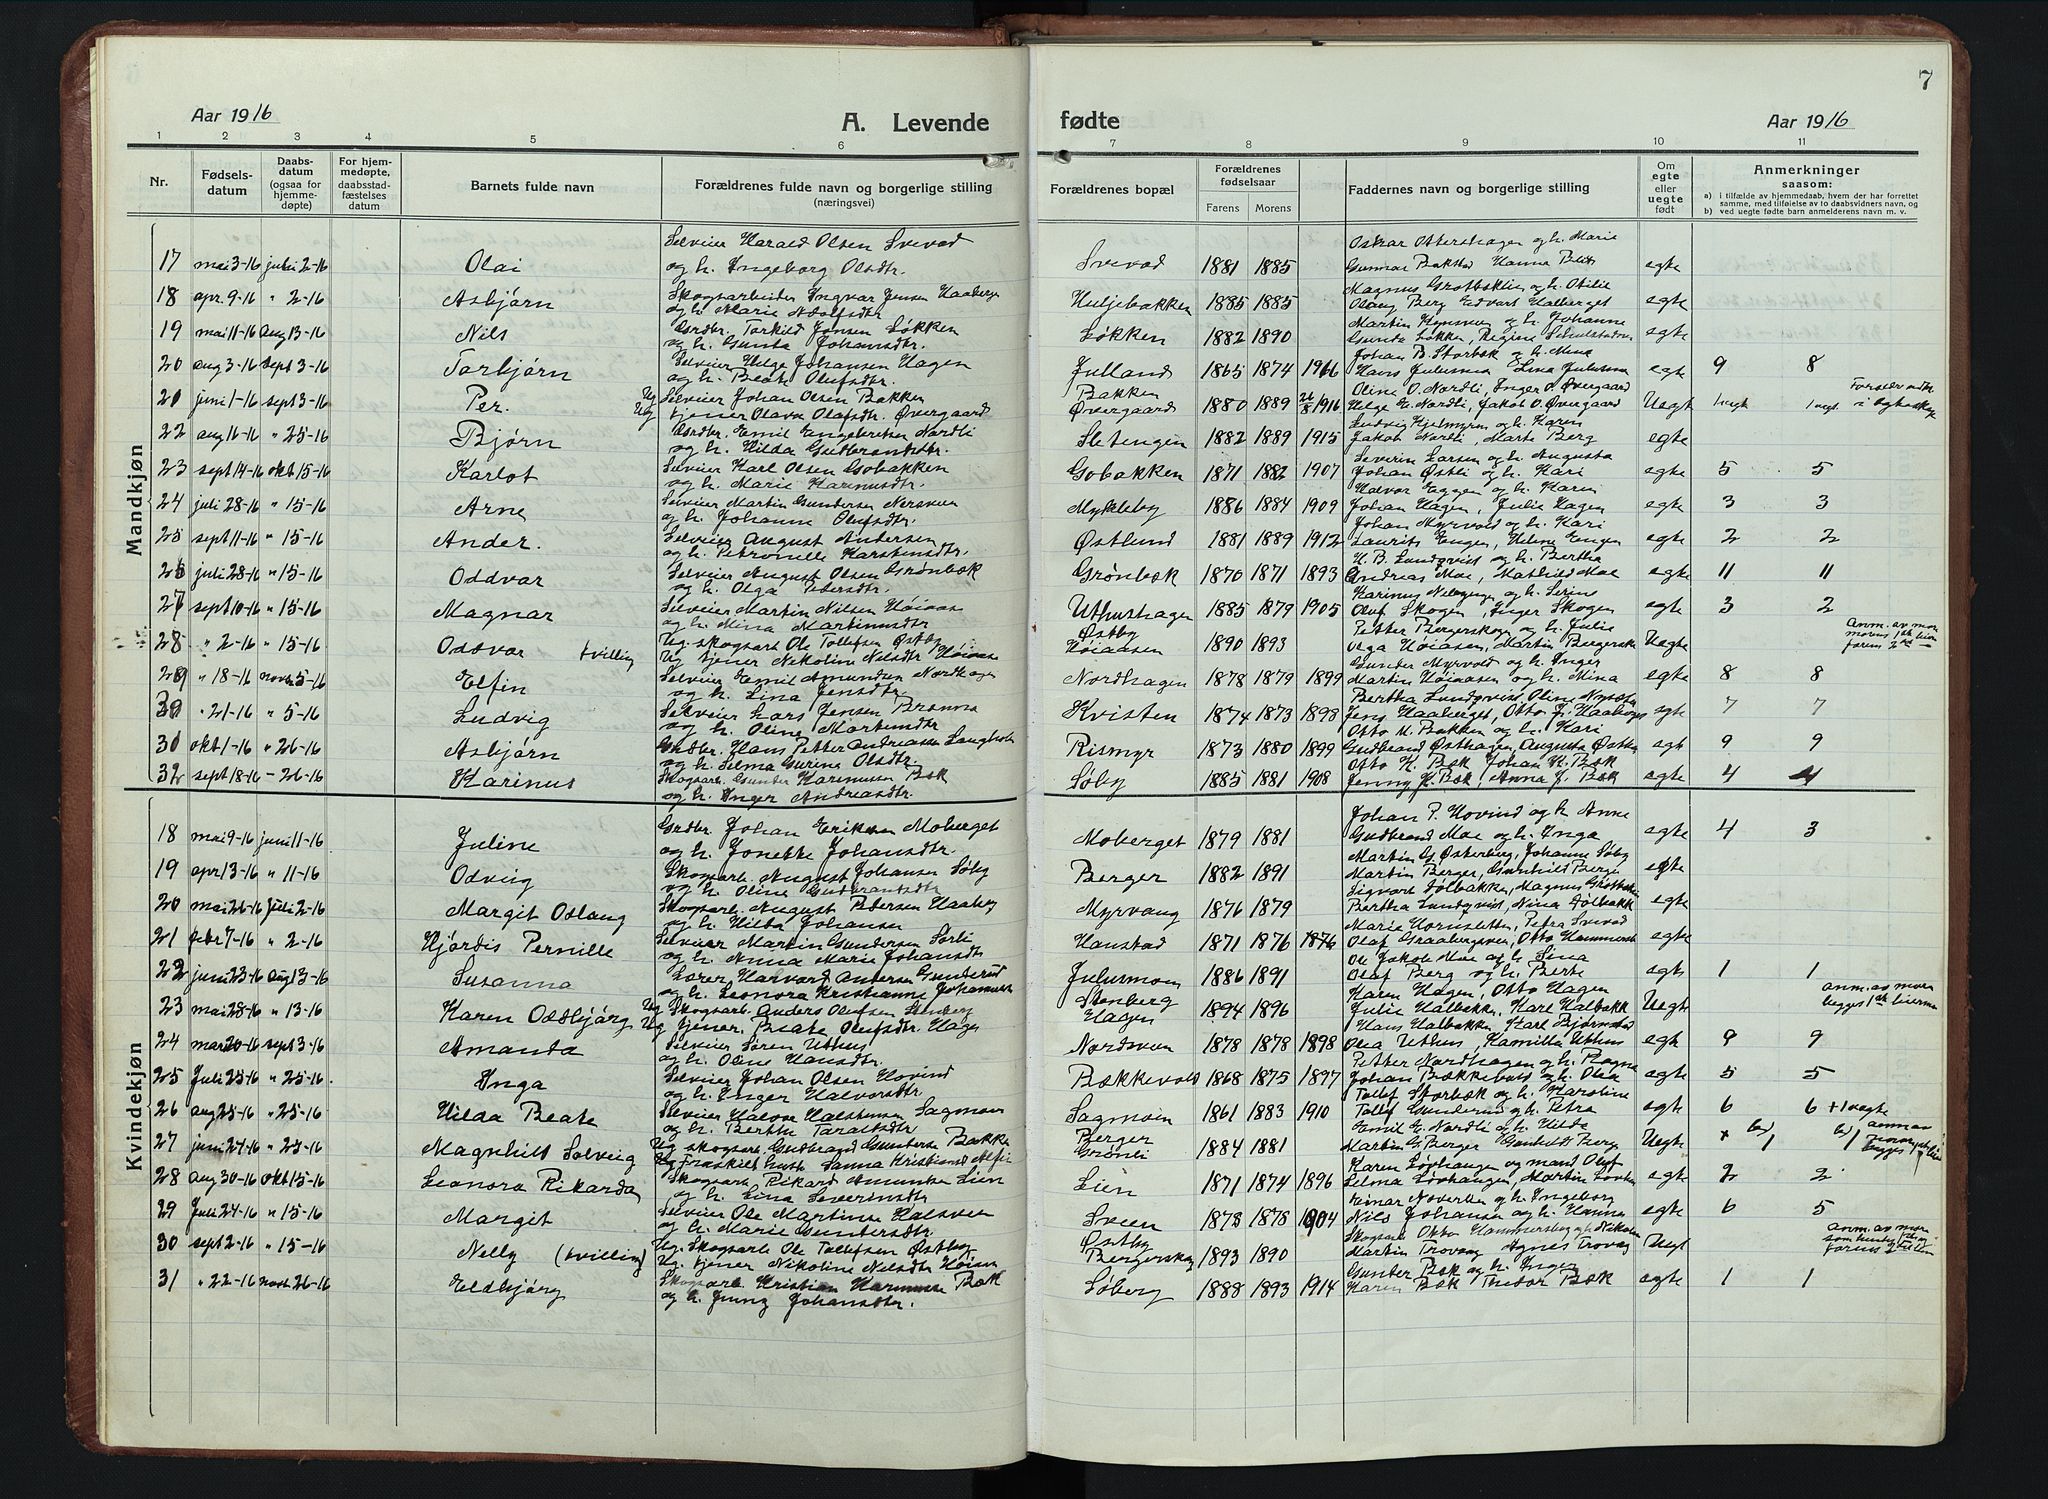 7
Aar 1916
A. Levende
fødte
Aar 1916
1 2 3 4 5 6 7 8 9 10 11
Nr.
Fødselsdatum
Daabsdatum (ogsaa for hjemmedøpte)
For hjemmedøpte, daabsstadfæstelses datum
Barnets fulde navn
Forældrenes fulde navn og borgerlige stilling (næringsvei)
Forældrenes bopæl
Forældrenes fødselsaar
Farens Morens
Faddernes navn og borgerlige stilling
Om egte eller uegte født
Anmerkninger
saasom:
a) i tilfælde av hjemmedaab, hvem der har forrettet samme, med tilføielse av to daabsvidners navn, og
b) ved uegte fødte barn anmelderens navn m. v.
Mandkjøn
Selveier Harald Olsen Svevad Oskar Ottershagen og h. Marie
17 mai 3-16 juli 2-16 Olai og h. Ingeborg Olsdtr. Svevad 1881 1885 Gunnar Bakstad Hanna egte
18 apr. 9-16 " 2-16 Asbjørn Skogsarbeider Ingvar Jensen Haaberget Huljebakken 1885 1885 Olaug Berg Edvart Halberget egte
og h. Marie Adolfsdtr. Martin og h. Johanne
19 mai 11-16 aug 13-16 Nils Grdbr. Torkild Jensen Løkken Løkken 1882 1890 Gunda Løkken, Regine egte
og h. Gunda Johansdtr. Johan B. Storbæk og h. Mina
20 aug 3-16 sept 3-16 Torbjørn Selveier Helge Johansen Hagen Julland 1865 1874 Hans Julusmoen Lina Julusmoen egte 9 8
og h. Beate Olufsdtr. Oline O. Nordli, Inger O. Øvergaard
21 juni 1-16 sept 3-16 Per. Ug Selveier Johan Olsen Bakken Bakken 1880 1889 26/8 1916 Helge E. Nordli, Jakob O. Øvergaard Uegt 1 uegt 1 uegt.
Ug tjener Olava Olafsdtr. Øvergaard Øvergaard og h. Karen
22 aug 16-16 " 25-16 Bjørn Grdbr. Emil Engebretsen Nordli Sletengen 1882 1889 1915 Jakob Nordli, Marte Berg egte
og h. Hilda Gudbrandsdtr. Severin Larsen og h. Augusta
23 sept 14-16 okt 15-16 Karlot Selveier Karl Olsen Gobakken Gobakken 1871 1882 1907 Johan Østli og h. Kari egte 5 5
og h. Marie Karinusdtr. Halvor Eggen og h. Karen
24 juli 28-16 " 15-16 Arne Selveier Martin Gundersen Nersveen Mykleby 1886 1884 1909 Johan Hagen, Julie Hagen egte 3 3
og h. Johanne Olufsdtr. Johan Myrvold og h. Kari
25 sept 11-16 " 15-16 Ander. Selveier August Andersen Østlund 1881 1889 1912 Laurits Engen, Helene Engen egte 2 2
og h. Petronelle Karstensdtr. H. B. Lundqvist og h. Bertha
26 juli 28-16 " 15-16 Oddvar Selveier August Olsen Grønbæk Grønbæk 1870 1871 1893 Andreas Moe, Mathild Moe egte 11 11
og h. Olga Pedersdtr.
27 sept 10-16 " 15-16 Magnar Selveier Martin Nilsen Høiaas Uthushagen 1885 1879 1905 Oluf Skogen, Inger Skogen egte 3 2
og h. Mina Martinusdtr Østby Petter Bergerskogen og h. Julie
28 " 2-16 " 15-16 Oddvar tvilling Ug. skogsarb Ole Tollefsen Østby Høiaasen 1890 1893 Olga Høiaasen, Martin Bergersk Uegte Anm. av mor
Ug tjener Nikoline Nilsdtr Høiaasen Gunder Myrvold og h. Inger
29 " 18-16 novr. 5-16 Elfin Selveier Emil Amundsen Nordhagen Nordhagen 1878 1879 1899 Martin Høiaasen og h. Mina egte 8 8
og h. Lina Jensdtr. Bertha Lundqvist, Oline
30 " 21-16 " 5-16 Ludvig Selveier Lars Jensen Brænna Kvisten 1874 1873 1898 Jens Haaberget, Otto J. Haaberget egte 7 7
og h. Oline Mortensdtr Otto M. Bakken og h. Kari
31 okt 1-16 " 26-16 Asbjørn Grdbr. Hans Petter Andreassen Langholen Rismyr 1873 1880 1899 Gudbrand Østhagen, Augusta Østby egte 9 9
og h. Selma Gurina Olsdtr. Otto K. Bæk Johan K. Bæk
32 sept 18-16 - 26-16 Karinus Skogsarb. Gunder Karinusen Bæk Søby 1885 1881 1908 Jenny K. Bæk, Anna J. Bæk egte 4 4
og h. Inger Andreasdtr.
Kvindekjøn
Johan P. Hovind og h. Anne
18 mai 9-16 juni 11-16 Juline Grdbr. Johan Eriksen Moberget Moberget 1879 1881 Gudbrand Moe og h. Inga egte 4 3
og h. Jonette Johansdtr. Martin G. Østerberg, Johanne Søby
19 apr 13-16 " 11-16 Odveig Skogsarb. August Johansen Søby Berger 1882 1891 Martin Berger, Gunhild Berger egte
og h. Oline Gudbrandsdtr Sigvart Dølbakken, Magnus
20 mai 26-16 Juli 2-16 Margit Oslaug Skogsarb. August Pedersen Haaberg Myrvang 1876 1879 Bertha Lundqvist, Nina Dølbakk egte
og h. Hilda Johansen Marie Hornsletten, Petra Svevad
21 febr 7-16 " 2-16 Hjørdis Pernille Selveier Martin Gundersen Sorli Hanstad 1871 1876 1876 Olaf Otto egte
og h. Anna Marie Johansdtr Ole Jakob Moe og h. Lina
22 juni 23-16 aug 13-16 Susanna Lærer Harvard Andersen Gunderud Julusmoen 1886 1891 Olaf Berg og h. Berte egte 1 1
og h. Leonora Kristianne Johannesdtr Karen Hagen, Otto Hagen anm. av moren
23 mai 28-16 " 13-16 Karen Oddbjørg Ug Skogsarb. Anders Olufsen Stenberg Stenberg 1894 1896 Julie Halbakken, Karl Halbakk Uegte begges 1ste leiermaal
Ug tjener. Beate Olufsdtr. Hagen Hagen Hans Halbakken, Karl Bjørnstad
24 mar 20-16 sept 3-16 Amanda Selveier Søren Uthus Nordsveen 1878 1878 1898 Olea Uthus, Kamilla Uthus egte 9 9
og h. Oline Hansdtr. Petter Nordhagen og h. Ragna
25 Juli 25-16 " 25-16 Inga Selveier Johan Olsen Hovind Bækkevold 1868 1875 1897 Johan Bækkevold og h. Olea egte 5 5
og h. Inger Halvorsdtr. Tollef Storbæk og h. Karoline
26 aug 25-16 " 25-16 Hilda Beate Selveier Halvor Halstensen Sagmoen Sagmoen 1861 1883 1910 Tollef Gunderud og h. Petra egte 6 6 + 1 uegte
og h. Berthe Taraldsdtr Emil E. Nordli og h. Hilda
27 juni 24-16 " 25-16 Magnhild Solveig Ug skogsarb. Gudbrand Gundersen Bakke Berger 1884 1881 Martin G. Berger Gunhild Berg Uegte
Ug Fraskilt hustr Sanna Kristiansdtr Grønli Karen Løvhaugen og mand Oluf
28 aug 30-16 okt 15-16 Leonora Rikarda Skogsarb. Rikard Amundsen Lien Lien 1871 1874 1896 Selma Løvhaugen, Martin egte 2 2
og h. Lina Severinsdtr Einar og h. Ingeborg
29 Juli 24-16 " 15-16 Margit Selveier Ole Martinsen Halsveen Sveen 1878 1878 1904 Nils Johansen og h. Hanna egte 6 5
og h. Marie Gundersdtr. Skogsarb Otto Hammersberg og h. Nikoline anm. av mor
30 sept 2-16 " 15-16 Nelly (tvilling) Ug. Skogsarb Ole Tollefsen Østby Østby 1893 1890 Martin Trovaag Agnes Trovaag Uegt
Ug tjener Nikoline Nilsdtr Høiaas Bergerskog Gunder Bæk og h. Inger
31 " 22-16 novr 26-16 Eldbjørg Skogsarb Kristian Karinusen Bæk Søberg 1888 1893 1914 Karen Bæk Thedor Bæk egte 1 1
og h. Jenny Johansdtr.